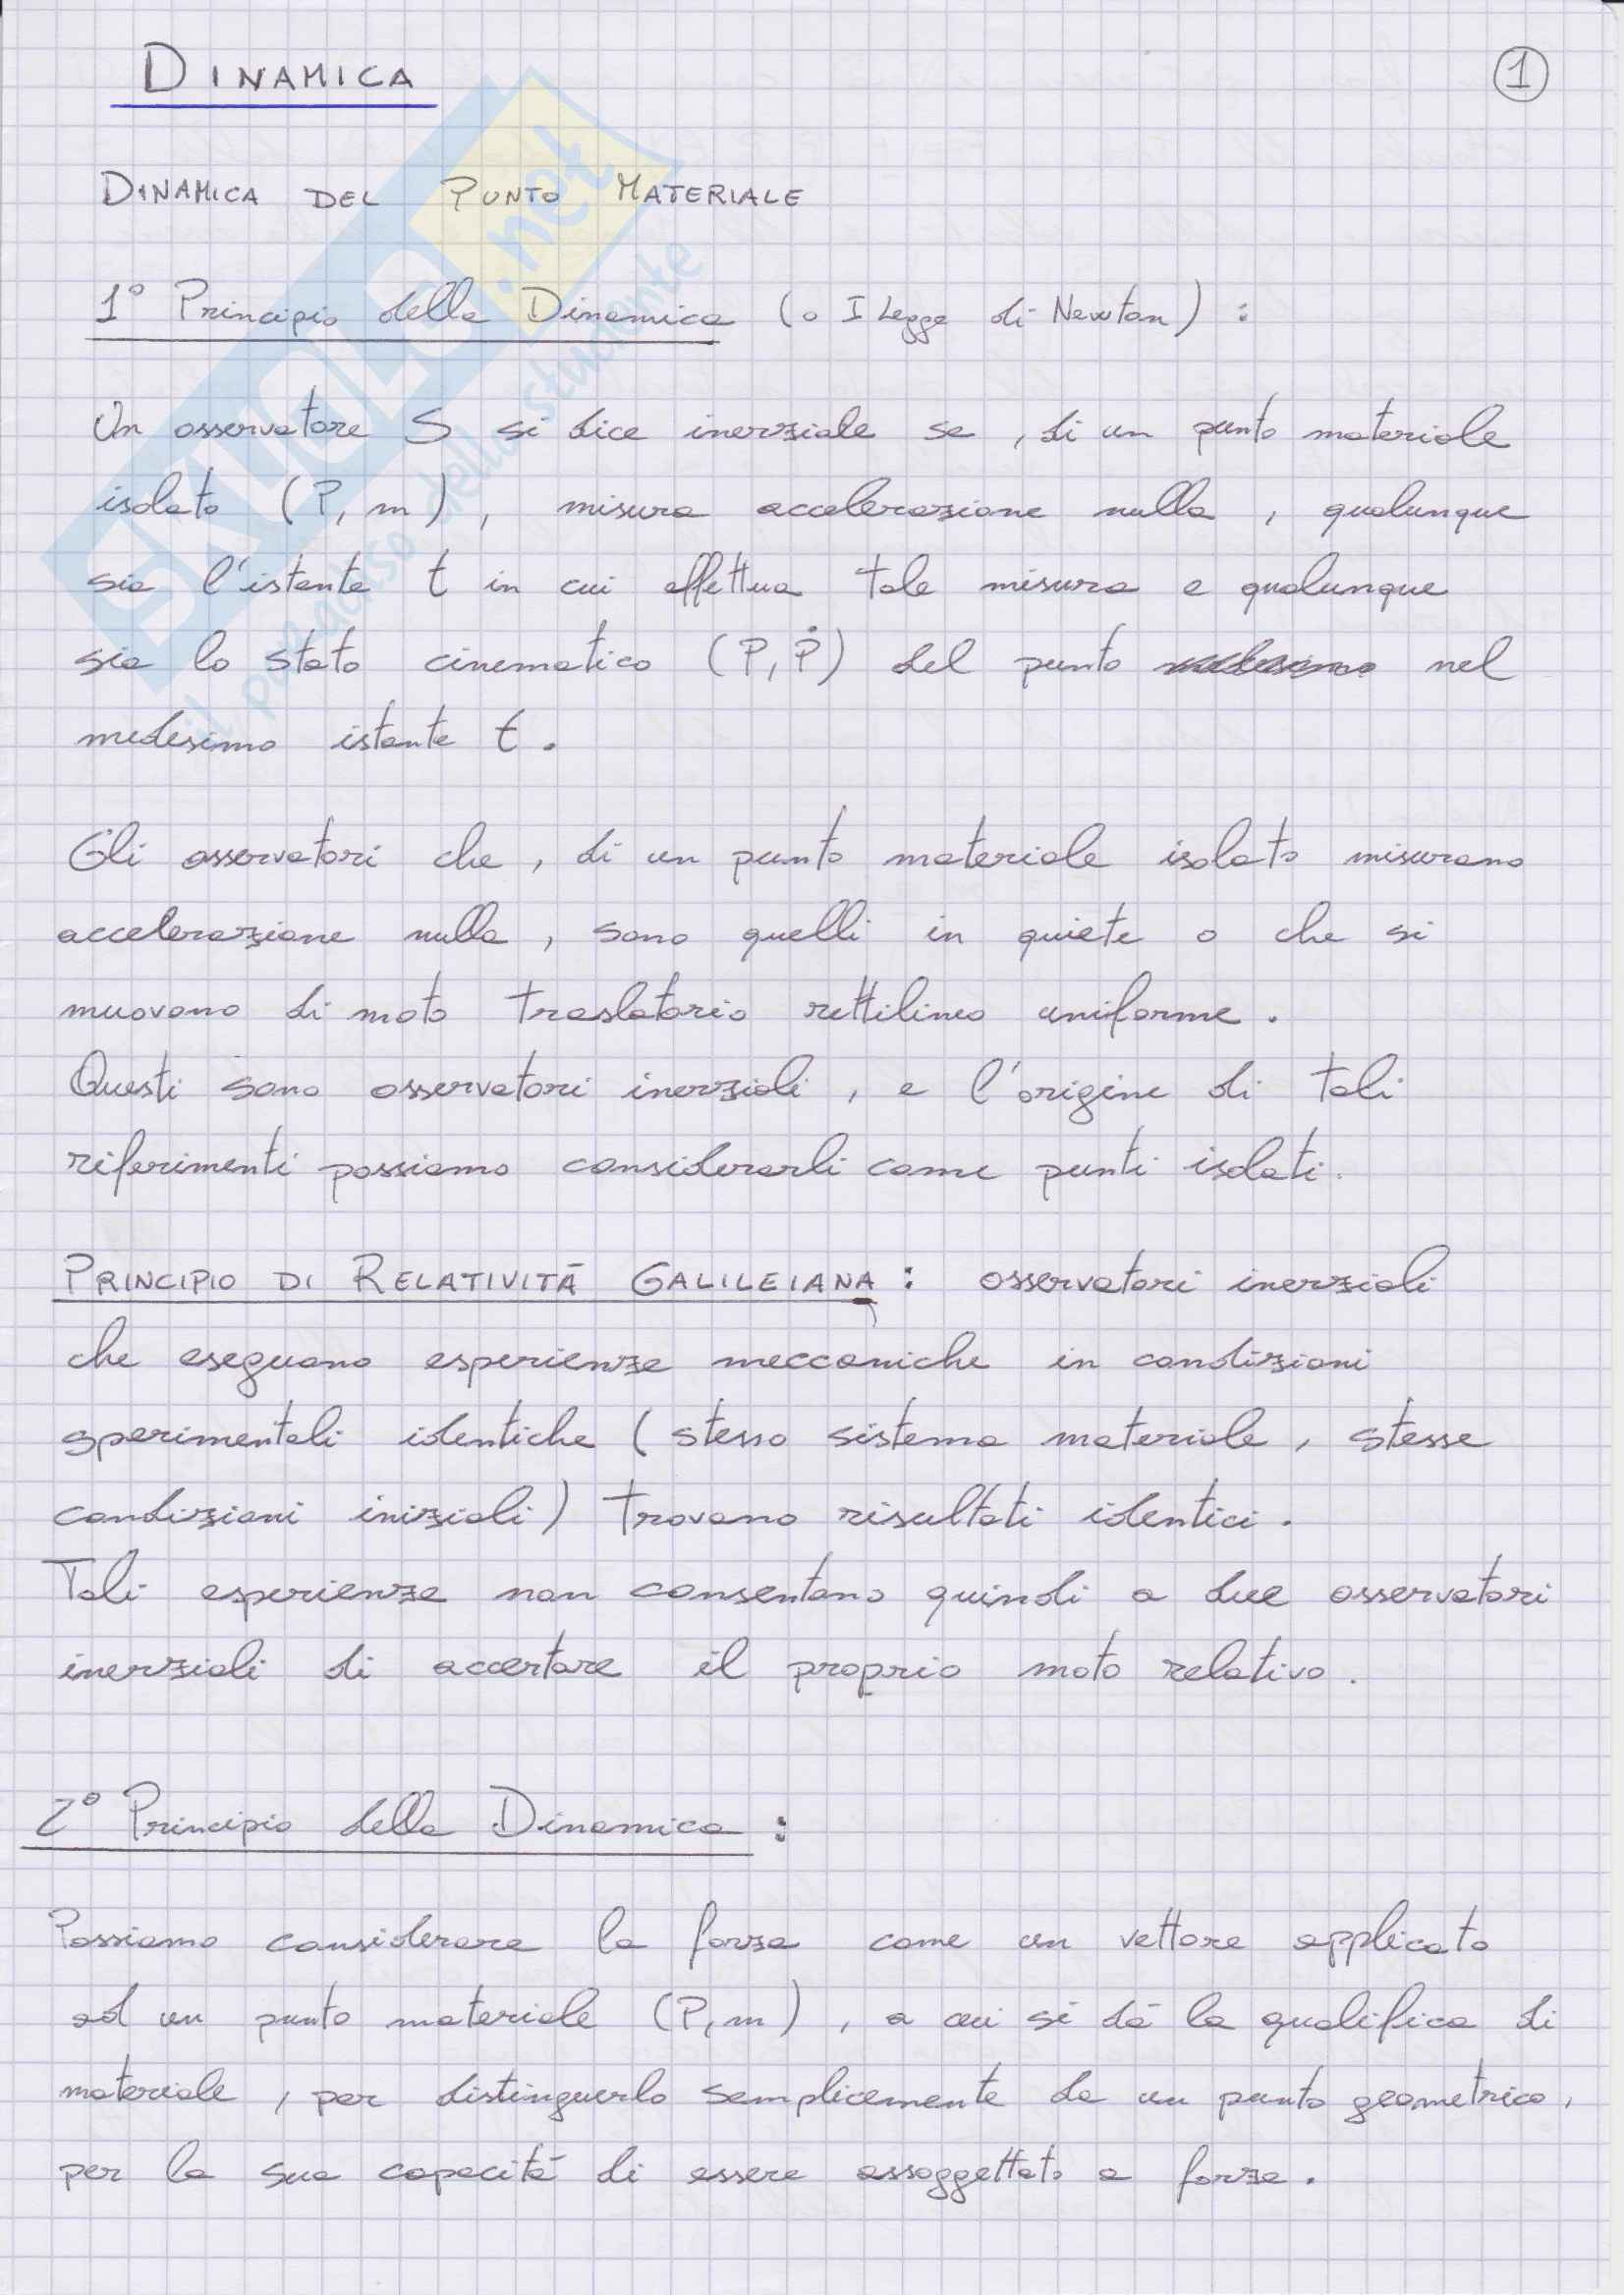 DINAMICA
1
DINAMICA DEL PUNTO MATERIALE
1° Principio della Dinamica (o I Legge di Newton) :
Un osservatore S si dice inerziale se , di un punto materiale
isolato (P, m) , misura accelerazione nulla , qualunque
sia l'istante t in cui effettua tale misura e qualunque
sia lo stato cinematico (P, Ṗ) del punto nel
medesimo istante t .
Gli osservatori che , di un punto materiale isolato misurano
accelerazione nulla , sono quelli in quiete o che si
muovono di moto traslatorio rettilineo uniforme .
Questi sono osservatori inerziali , e l'origine di tali
riferimenti possiamo considerarli come punti isolati .
PRINCIPIO DI RELATIVITÁ GALILEIANA : osservatori inerziali
che eseguano esperienze meccaniche in condizioni
sperimentali identiche (stesso sistema materiale , stesse
condizioni iniziali) trovano risultati identici .
Tali esperienze non consentono quindi a due osservatori
inerziali di accertare il proprio moto relativo .
2° Principio della Dinamica :
Possiamo considerare la forza come un vettore applicato
ad un punto materiale (P, m) , a cui si dá la qualifica di
materiale , per distinguerlo semplicemente da un punto geometrico ,
per la sua capacitá di essere assoggettato a forze .
SKUOLA.net
il paradiso dello studente